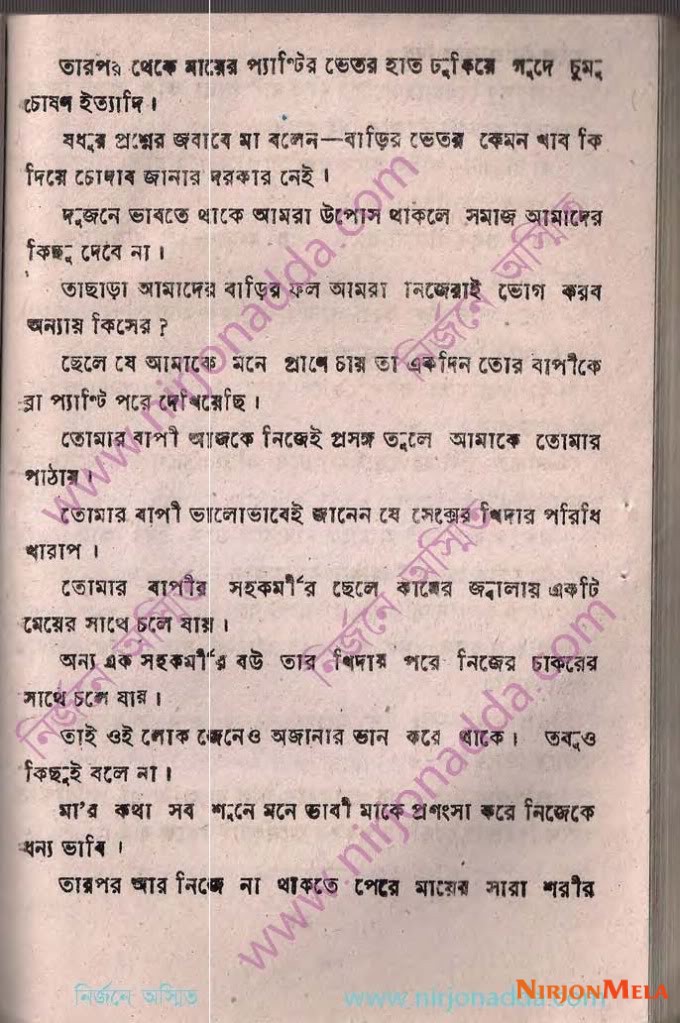 তারপর থেকে মায়ের প্যান্টির ভেতর হাত ঢুকিয়ে গুদে চুমু
চোষণ ইত্যাদি।
ষধুর প্রশ্নের জবাবে মা বলেন—বাড়ির ভেতর কেমন খাব কি
দিয়ে চোদাব জানার দরকার নেই।
দুজনে ভাবতে থাকে আমরা উপোস থাকলে সমাজ আমাদের
কিছু দেবে না।
তাছাড়া আমাদের বাড়ির ফল আমরা নিজেরাই ভোগ করব
অন্যায় কিসের?
ছেলে যে আমাকে মনে প্রাণে চায় তা একদিন তোর বাপীকে
ব্রা প্যান্টি পরে দেখিয়েছি।
তোমার বাপী আজকে নিজেই প্রসঙ্গ তুলে আমাকে তোমার
পাঠায়।
তোমার বাপী ভালোভাবেই জানেন যে সেক্সের খিদার পরিধি
খারাপ।
তোমার বাপীর সহকর্মীর ছেলে কামের জ্বালায় একটি
মেয়ের সাথে চলে যায়।
অন্য এক সহকর্মীর বউ তার খিদায় পরে নিজের চাকরের
সাথে চলে যায়।
তাই ওই লোক জেনেও অজানার ভান করে থাকে। তবুও
কিছুই বলে না।
মা'র কথা সব শুনে মনে ভাবী মাকে প্রশংসা করে নিজেকে
ধন্য ভাবি।
তারপর আর নিজে না থাকতে পেরে মায়ের সারা শরীর
নির্জনে অস্মিত
www.nirjonadda.com
NIRJONMELA
www.nirjonadda.com
নির্জনে অস্মিত
নির্জনে অস্মিত
নির্জনে অস্মিত
www.nirjonadda.com